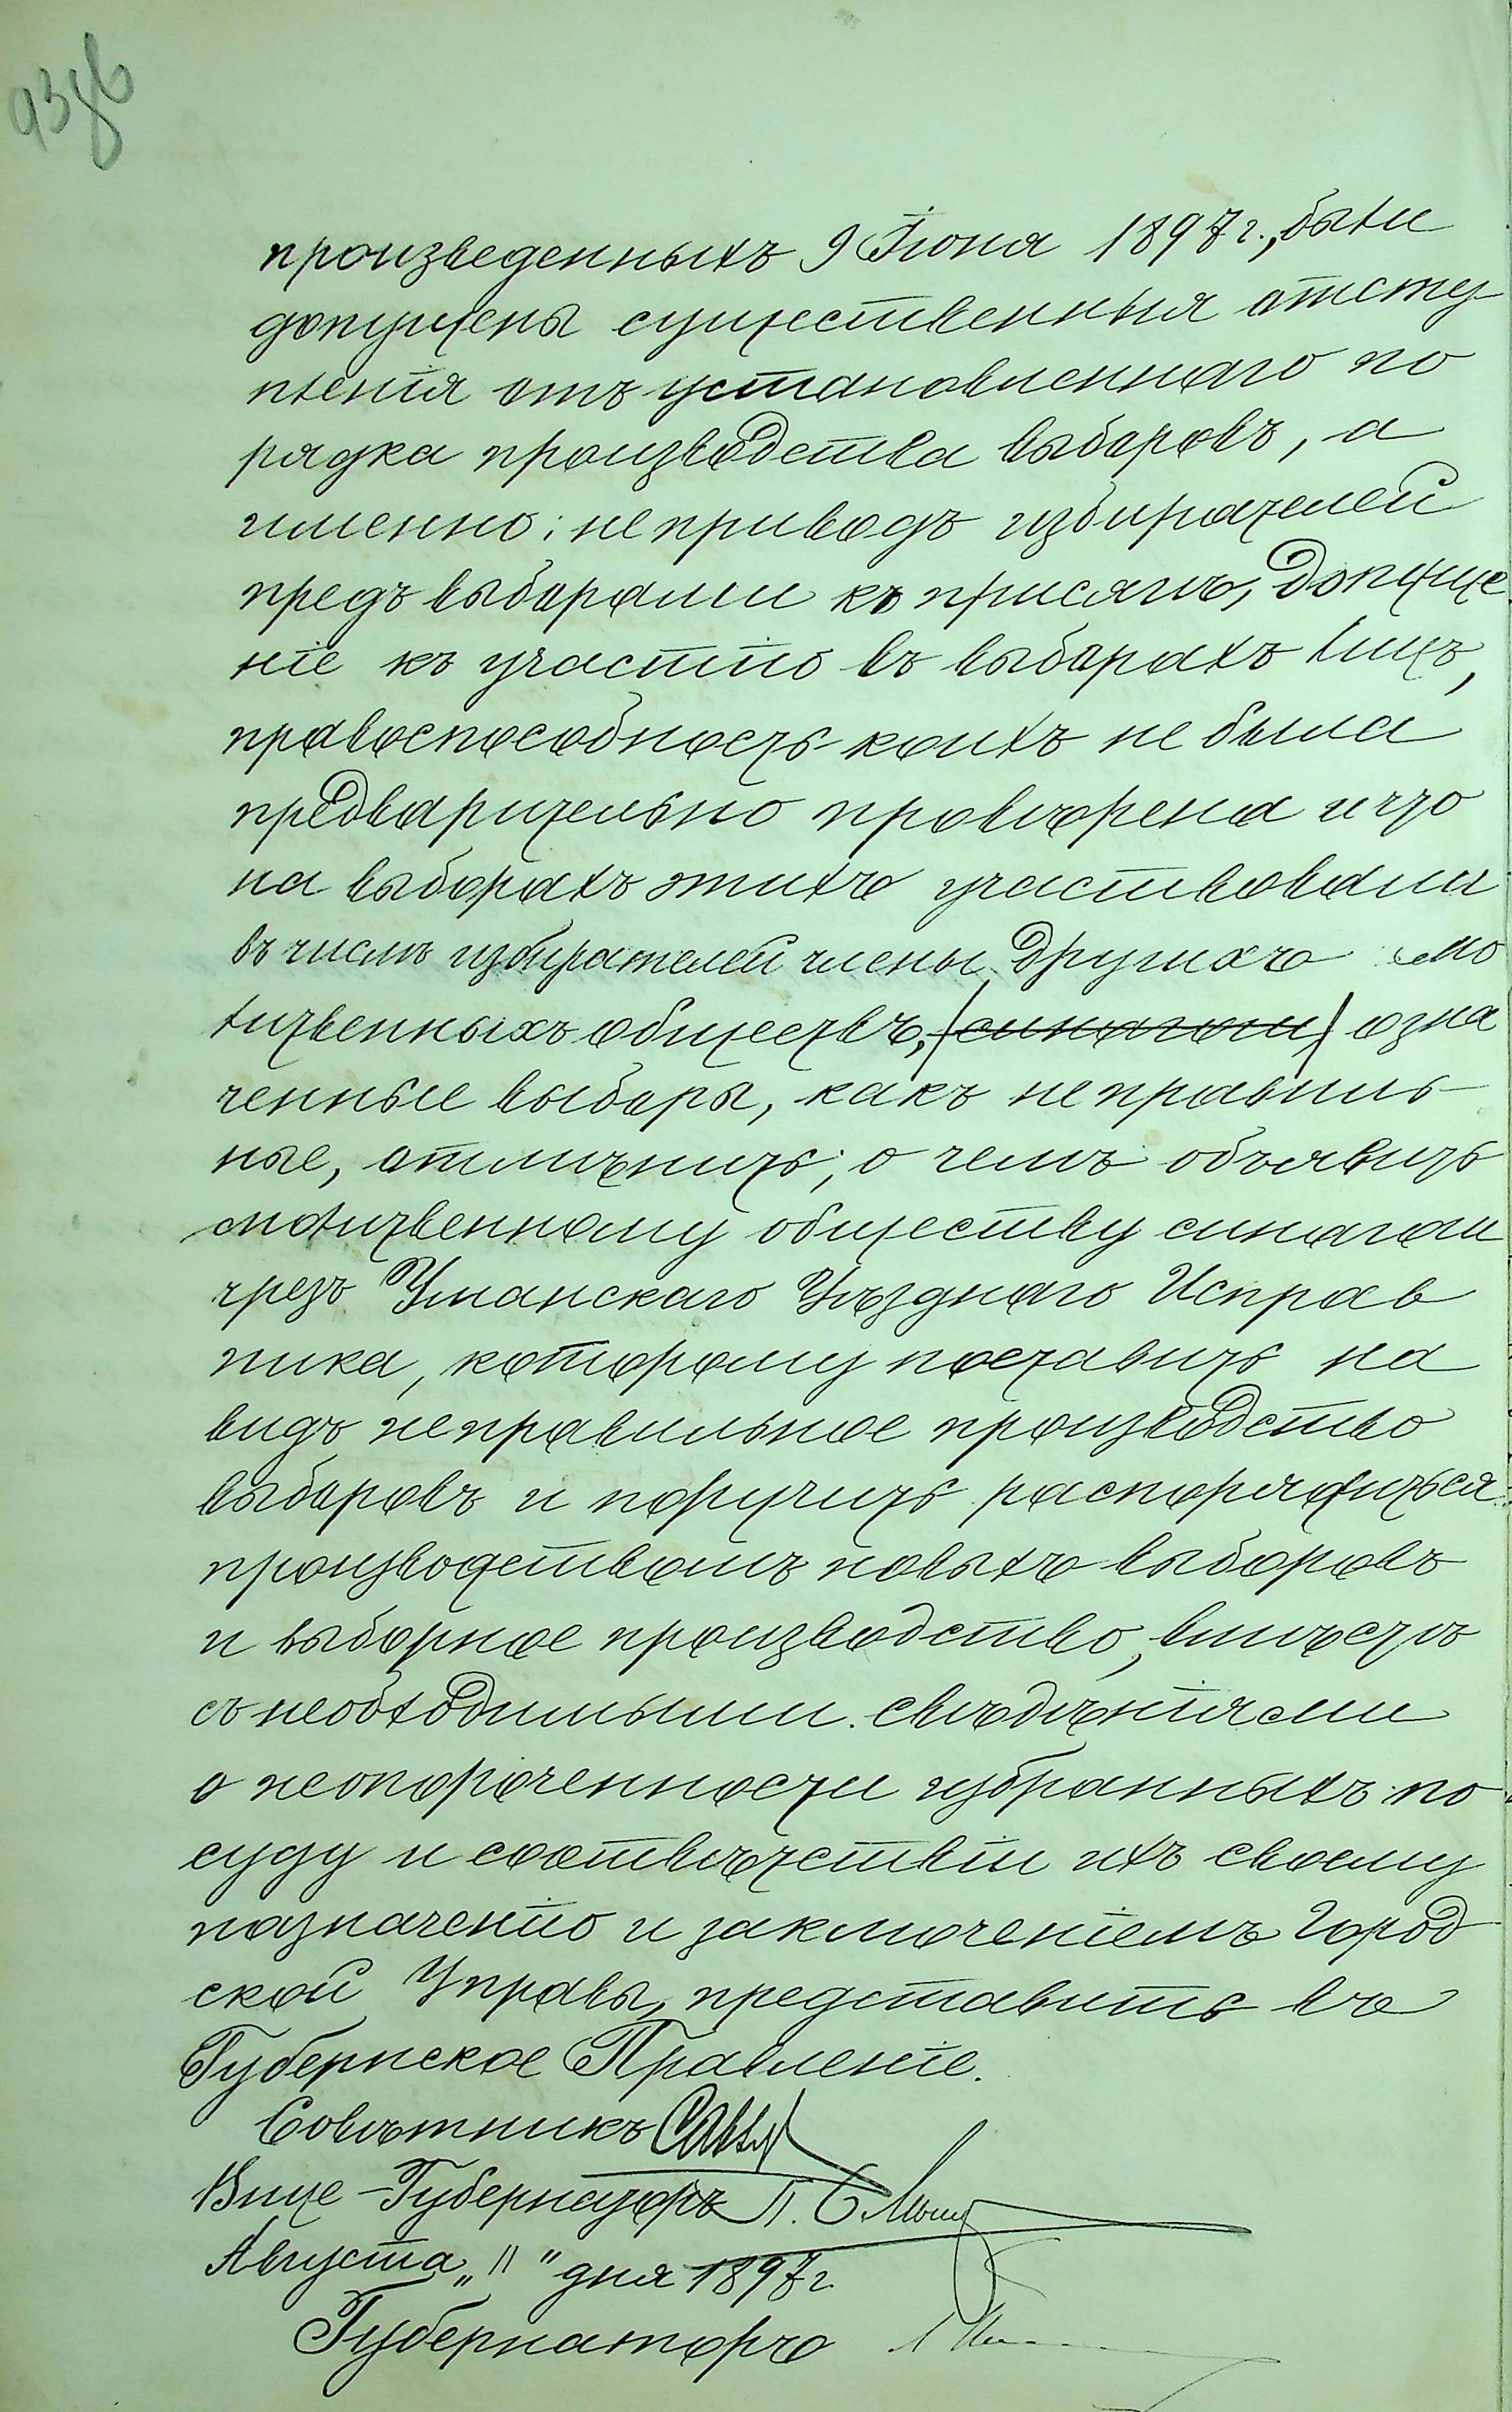 93об
произведенныхъ 9 Іюня 1897 г., были
допущены существенныя отсту
пленія отъ установленнаго по
рядка производства выборовъ, а
именно: не приводъ избирателей
предъ выборами къ присягѣ, допуще
ніе къ участію въ выборахъ лицъ,
правоспособность коихъ не была
предварительно провѣрена и что
на выборахъ этихъ участвовали
въ числѣ избирателей члены другихъ мо
литвенныхъ обществъ, (синагоги) озна
ченные выборы, какъ неправиль
ные, отмѣнить; о чемъ объявить
молитвенному обществу синагоги
чрезъ Уманскаго Уѣзднаго Исправ
ника, которому поставить на
видъ неправильное производство
выборовъ и поручить распорядиться
производствомъ новыхъ выборовъ
и выборное производство, вмѣстѣ
съ необходимыми свѣдѣніями
о неопороченности избранныхъ по
суду и соотвѣтствіи ихъ своему
назначенію и заключеніемъ Город
ской Управы, представить въ
Губернское Правленіе.
Совѣтникъ
Вице-Губернаторъ
Августа „11" дня 1897 г.
Губернаторъ